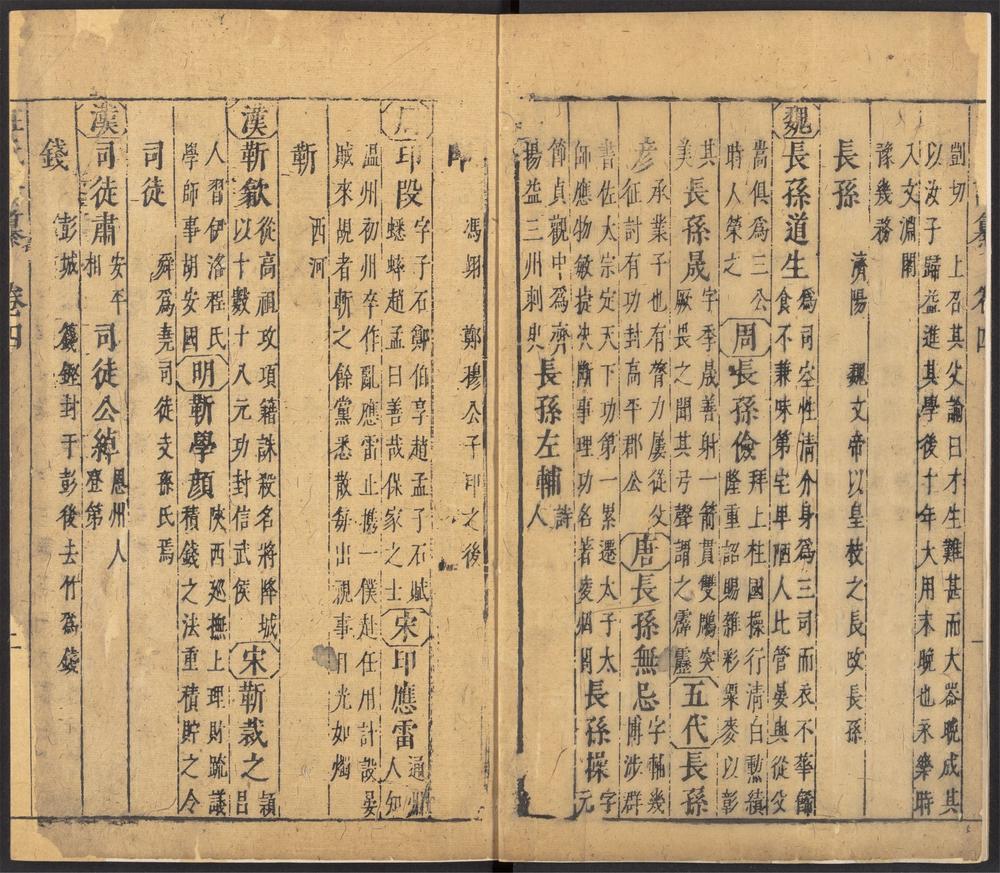 剴切 上召其父諭曰才生難甚而大器晚成其
以汝子歸益進其學後十年大用未晚也永樂時
入文淵閣
豫幾務
長孫 濟陽 魏文帝以皇枝之長改長孫
魏 長孫道生 為司空性清介身為三司而衣不華餙
食不兼味第宅卑陋人比管晏與從父
嵩俱為三公
時人榮之 周 長孫儉 拜上柱國操行清白勲績
隆重詔賜雜彩粟麥以彰
其
美 長孫晟 字季晟善射一箭貫雙鵰突
厥畏之聞其弓聲謂之霹靂 五代 長孫
彥 承業子也有膂力屢從父
征討有功封高平郡公 唐 長孫無忌 字輔幾
博涉群
書佐太宗定天下功第一累遷太子太
師應物敏捷决斷事理功名著凌烟閣 長孫操 字
元
節貞觀中為齊
楊益三州刺史 長孫左輔 詩
人
印 馮翊 鄭穆公子印之後
周 印段 字子石鄭伯享趙孟子石賦
蟋蟀趙孟曰善哉保家之士 宋 印應雷 通州
人知
温州初州卒作亂應雷止携一僕赴任用計設宴
賊來覘者斬之餘黨悉散每出視事目光如燭
靳 西河
漢 靳歙 從高祖攻項籍誅殺名將降城
以十數十入元功封信武侯 宋 靳裁之 潁
昌
人習伊洛程氏
學師事胡安國 明 靳學顏 陜西廵撫上理財䟽議
積錢之法重積貯之令
司徒 舜為堯司徒支孫氏焉
漢 司徒肅 安平
相 司徒公綽 恩州人
登第
錢 彭城 籛鏗封于彭後去竹為錢
卷四